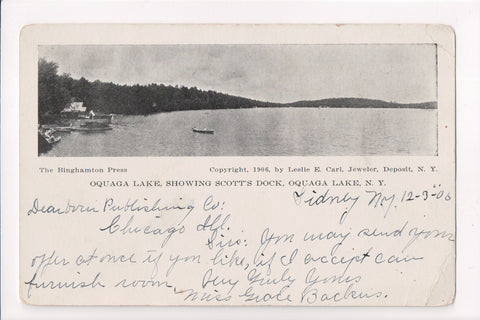 The Binghamton Press
Copyright, 1906, by Leslie E. Carl, Jeweler, Deposit, N. Y.
OQUAGA LAKE, SHOWING SCOTT'S DOCK, OQUAGA LAKE, N. Y.
Sidney N.Y. 12-3-06
Dearborn Publishing Co:
Chicago Ill.
Sir: You may send your
offer at once if you like, if I accept can
furnish room. Very Truly Yours
Miss Grace Backus.